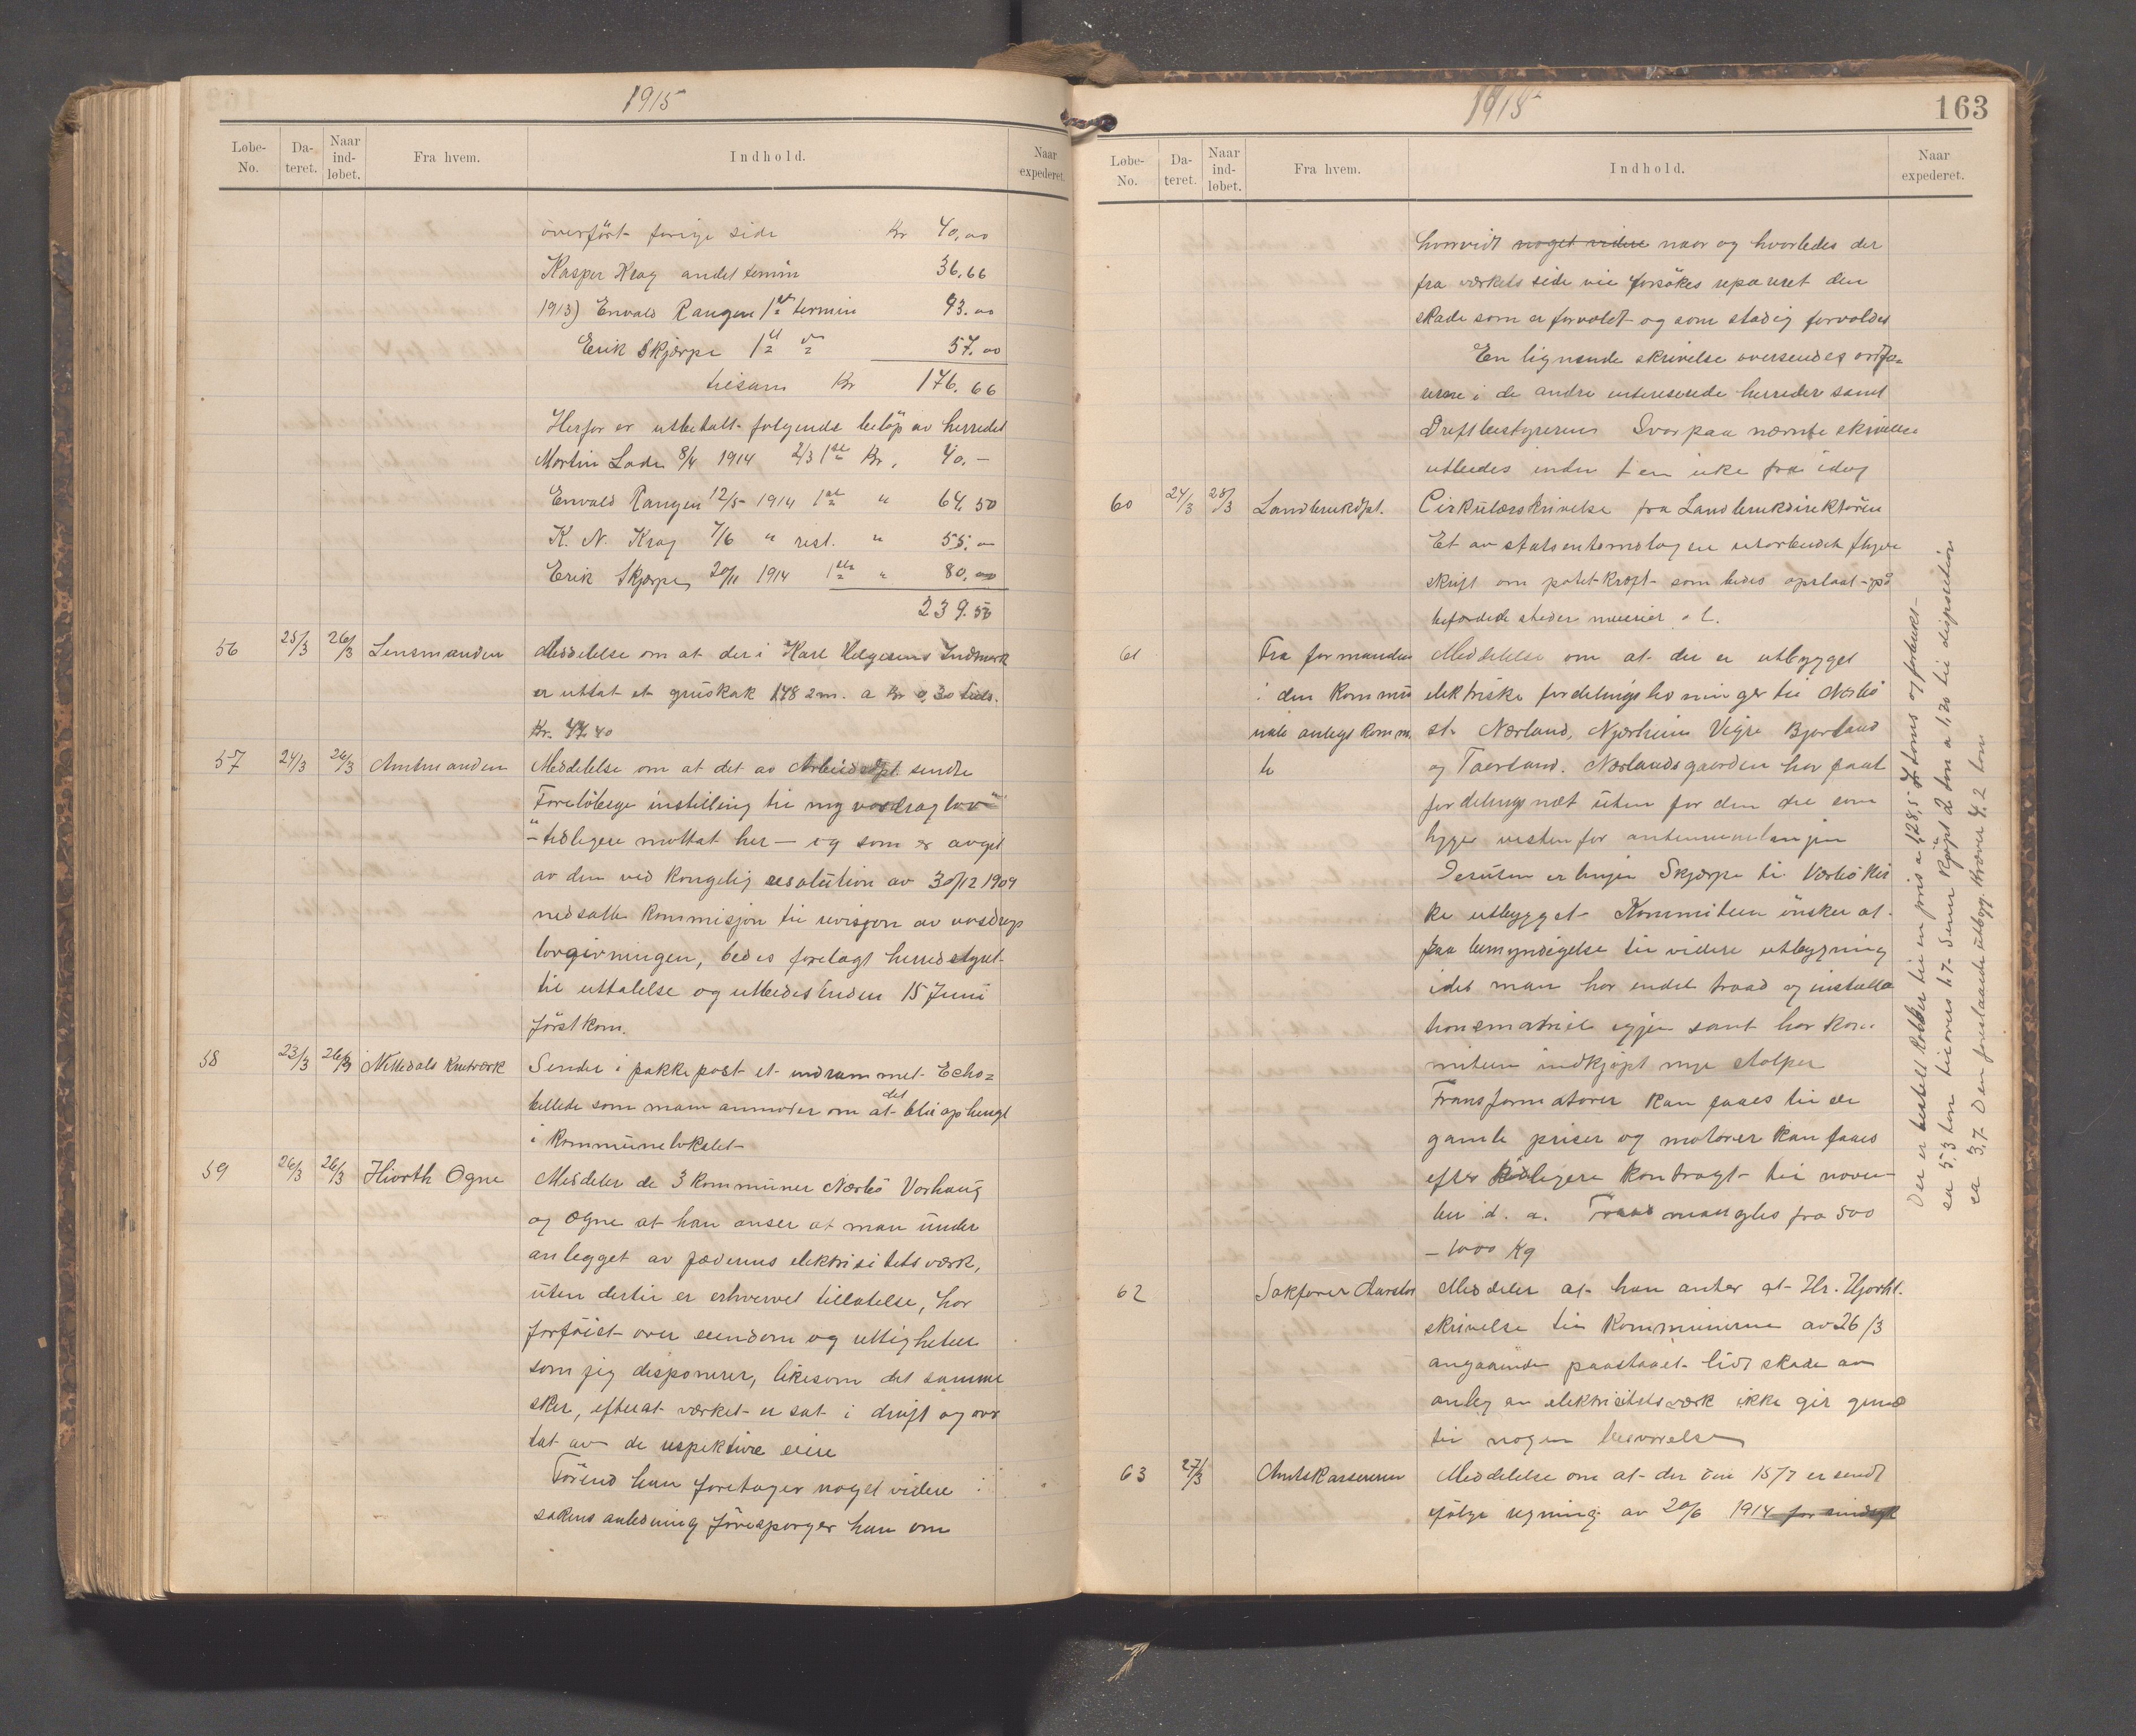 1915
Løbe-No. Da-teret. Naar ind-løbet. Fra hvem. Indhold. Naar expederet.
overført forige side Kr 40,00
Kasper Krag andet termin 36.66
1913) Envald Rangen 1st termin 43.00
Erik Skjærpe 1st do 57.00
tilsam Kr 176.66
Herfor er utbetalt følgende beløp av herredet
Martin Lode 8/4 1914 2/3 1ste Kr. 40.-
Envald Rangen 12/5 1914 1st " 64.50
K. N. Krag 7/6 " rest. " 55.00
Erik Skjærpe 20/11 1914 1ste " 80.00
239.50
56 25/3 26/3 Lensmanden Meddelelse om at der i Karl Helgesens Indmark
er uttat et gruskak 148 2m. a Kr 0,30 tils.
Kr. 44.40
57 24/3 26/3 Amtmanden Meddelelse om at det av Arbeidsdpt. sendte
Foreløbige instilling til ny vasdraglov"
"- tidligere mottat her - og som er avgit
av den ved kongelig resolution av 30/12 1909
nedsatte kommisjon til revisjon av vasdrags
lovgivningen, bedes forelagt herredstyret
til uttalelse og utbedes inden 15 Juni
førstkom.
58 23/3 26/3 Nittedals Krutværk Sender i pakkepost et indrammet Echo=
billede som man anmoder om at det blir ophengt
i kommunelokalet
59 26/3 26/3 Hiorth Ogne Meddeler de 3 kommuner Nærbø Varhaug
og Ogne at han anser at man under
anlegget av Jæderens elektrisitetsværk,
uten dertil er erhvervet tillatelse, har
forføiet over eiendom og uttigheter
som jeg disponerer, likesom det samme
sker, efterat værket er sat i drift og over
tat av de respektive eiere
Førend han foretager noget videre i
sakens anledning forespørger han om
1915
163
Løbe-No. Da-teret. Naar ind-løbet. Fra hvem. Indhold. Naar expederet.
hvorvidt noget videre naar og hvorledes der
fra værkets side vil forsøkes reparert den
skade som er forvoldt og som stadig forvoldes
En lignende skrivelse oversendes ordfø=
rerne i de andre interesserede herreder samt
Driftbestyreren Svar paa nævnte skrivelse
utbedes inden 1 en uke fra idag
60 24/3 28/3 Landbruksdpt. Cirkulærskrivelse fra Landbruksdirektøren
Et av statsentomologen utarbeidet flyve
skrift om potetkræft som bedes opslaat på
befærdede steder meierier o l.
61 Fra formanden Meddelelse om at der er utbygget
i den kommu elektriske fordelingsledninger til Nærbø
nale anlegskomm. st. Nærland, Njærheim Vigre Bjorland
og Taarland. Nærlandsgaarden har faat
fordelingsnæt uten for den del som
ligger vesten for
Desuten er linjen Skjærpe til Værbø kir
ke utbygget Kommiteen ønsker at
faa bemyndigelse til videre utbygning
idet man har endel traad og installa
tionsmatriel igjen samt har kom
miteen indkjøpt nye stolper
Transformatorer kan faaes til de
gamle priser og motorer kan faaes
efter tidligere kontragt til novem
ber d. a. Traad mangles fra 500
- 1000 Kg
62 Sakfører Aarstad Meddeler at han antar at Hr. Hjorht.
skrivelse til kommunerne av 26/3
angaaende paastaaet lidt skade av
anleg av elektrisitetsværk ikke gir grund
til nogen besvarelse
63 27/3 Amtskassereren Meddelelse om at der den 15/7 er sendt
ifølge regning av 20/6 1914 for
Der er bestilt kobber til en pris a 128,5 tons og forbruks-
ca 5,3 ton tilovers 1.7. Senere kjøpt 2 ton a 1,20 til disposition
ca 3,7 Den forestaaende utbygg. kræver 4,2 ton